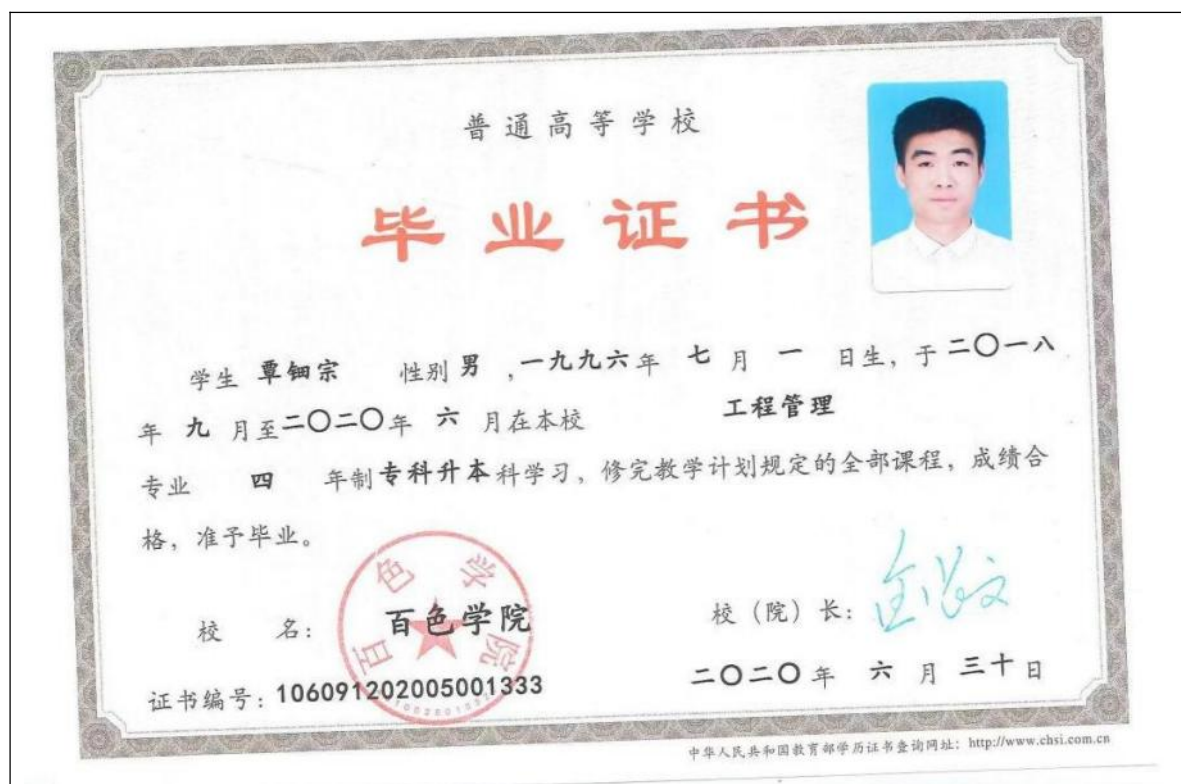 普通高等学校
毕业证书
学生 覃钿宗 性别 男 ,一九九六年 七 月 一 日生，于二〇一八
年 九 月至二〇二〇年 六 月在本校 工程管理
专业 四 年制专科升本科学习，修完教学计划规定的全部课程，成绩合
格，准予毕业。
百色学院
校 名： 百色学院
校（院）长：
证书编号：106091202005001333
二〇二〇年 六 月 三十日
中华人民共和国教育部学历证书查询网址：http://www.chsi.com.cn